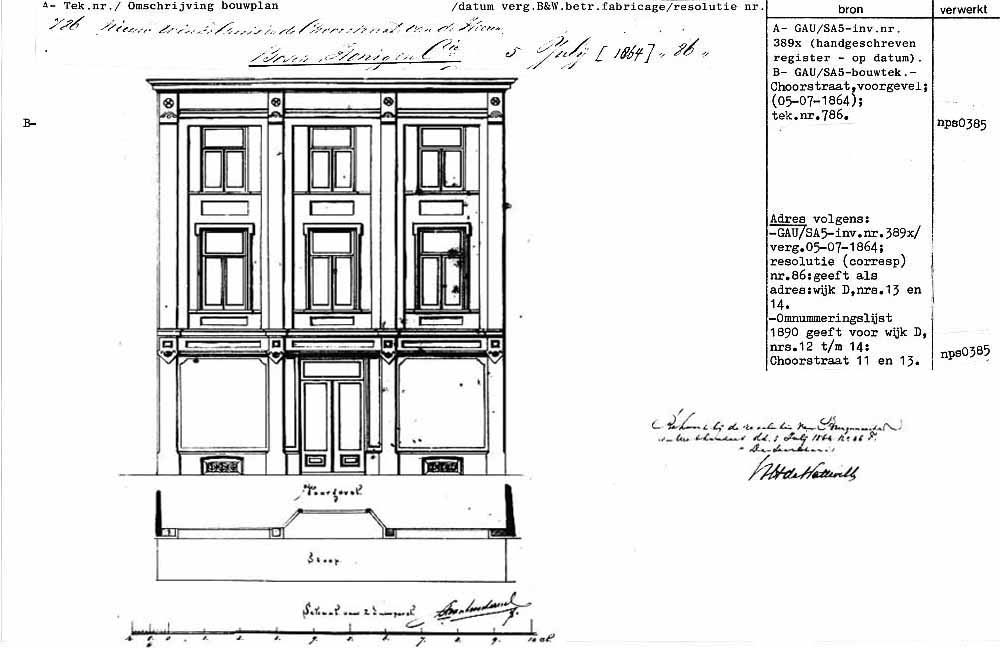 A- Tek.nr./ Omschrijving bouwplan /datum verg.B&W.betr.fabricage/resolutie nr.
bron
verwerkt
786 Nieuw Choorstraat van de Heeren
en Cie 5 July [1864] „ 86 „
B-
A- GAU/SA5-inv.nr.
389x (handgeschreven
register - op datum).
B- GAU/SA5-bouwtek.-
Choorstraat,voorgevel;
(05-07-1864);
tek.nr.786.
nps0385
Adres volgens:
-GAU/SA5-inv.nr.389x/
verg.05-07-1864;
resolutie (corresp)
nr.86:geeft als
adres:wijk D,nrs.13 en
14.
-Omnummeringslijst
1890 geeft voor wijk D,
nrs.12 t/m 14:
Choorstraat 11 en 13.
nps0385
bij de resolutie van Burgemeester
en Wethouders dd. 5 July 1864 No 86
De Secretaris
Voorgevel
Stoep
Schaal van 2 duim per el
0. 1. 2. 3. 4. 5. 6. 7. 8. 9. 10 el